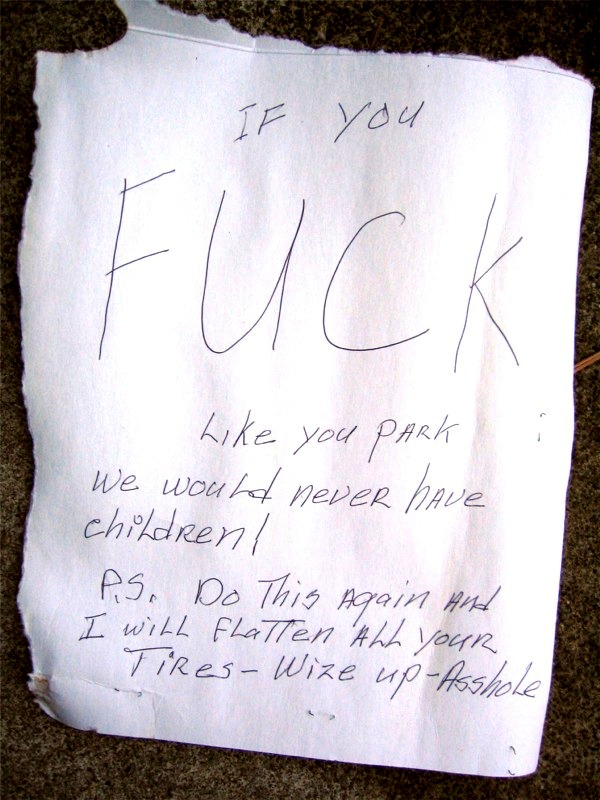 IF YOU
FUCK
Like you PARK
we would never have
children!
P.S. Do This Again and
I will Flatten ALL your
Tires - Wize up - Asshole